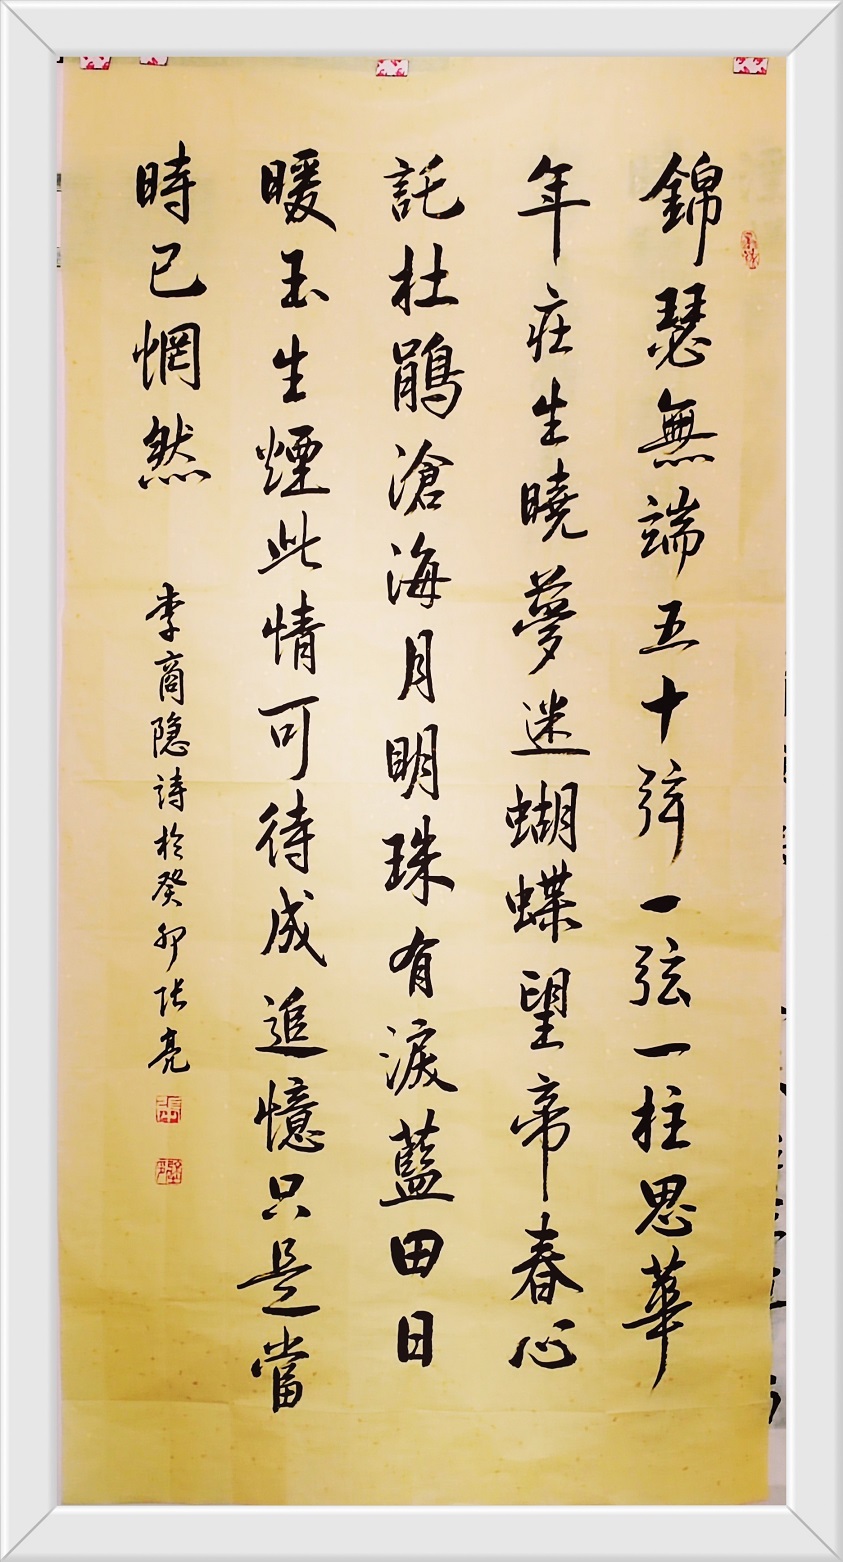 錦瑟無端五十弦一弦一柱思華
年莊生曉夢迷蝴蝶望帝春心
託杜鵑滄海月明珠有淚藍田日
暖玉生煙此情可待成追憶只是當
時已惘然
李商隐詩於癸卯张亮